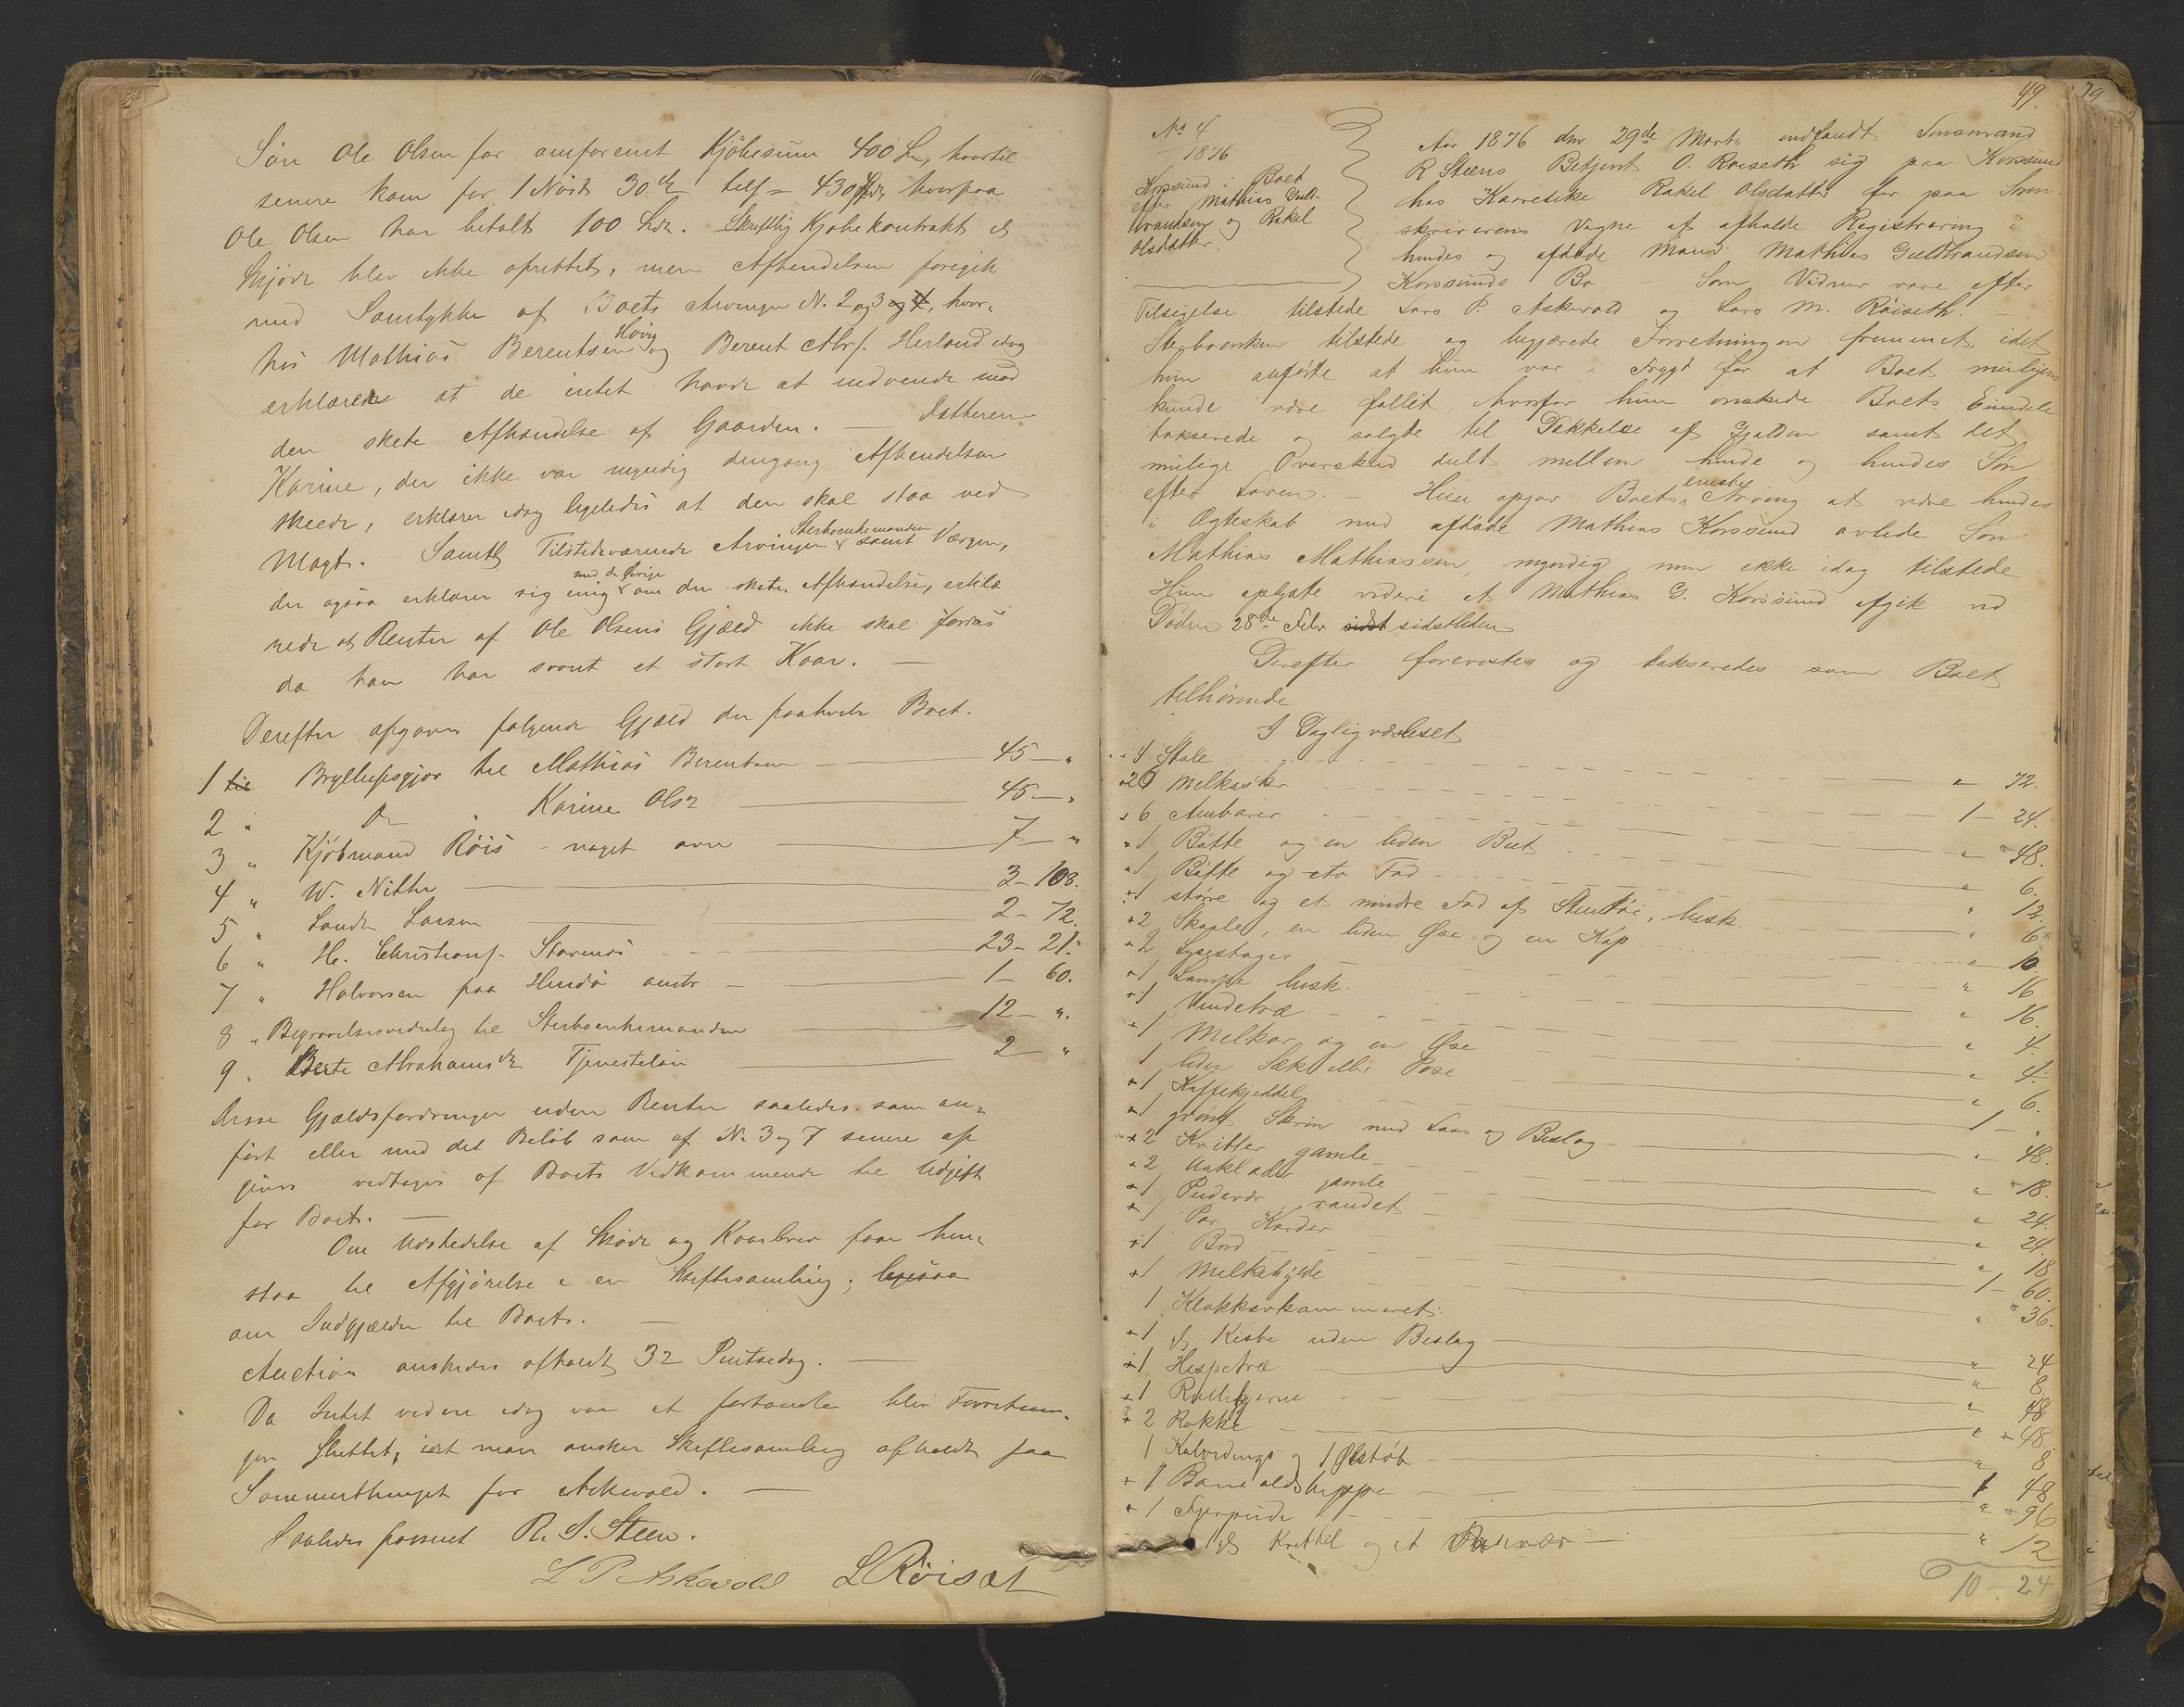 Søn Ole Olsen for omforemt Kjøbesum 400 hvortil
senere kom for 1 Nøst 30 tils = 430 hvorpaa
Ole Olsen har betalt 100 Skriftlig Kjøbekontrakt
Skjøde blev ikke oprettet, men Afhendelsen foregik
med Samtykke af Boets Arvinger N. 2 og 3 og 4, hvor-
hos Mathias Berentsen Høvig og Berent Abr. Herland idag
erklærer at de intet havde at indvende mod
den skete Afhændelse af Gaarden. — Datteren
Karine, der ikke var myndig dengang Afhendelsen
skede, erklærer idag ligeledes at den skal staa ved
Magt. Samtl Tilstedeværende Arvinger Sterboenkemanden samt Værgen,
der ogsaa erklærer sig enig med de øvrige om den skete Afhændelse, erklæ
rede at Renter af Ole Olsens Gjæld ikke skal
da han har svaret et stort Kaar. —
Derefter opgaves følgende Gjæld der paahviler Boet.
1 til Bryllupsgjør til Mathias Berentsen — 45 — "
2 " Do " Karine Olsdr — 45 — "
3 " Kjøbmand Røis - noget over — 7 — "
4 " W. Nitter — 3 - 108.
5 " Larsen — 2 - 72.
6 " H. Christians. Stavenæs — 23 - 21.
7 " Halvorsen paa Hindø — 1 - 60.
8 " Begravelsesvederlag til Sterboenkemanden — 12 — "
9 " Berte Abrahamsdr Tjenesteløn — 2 — "
Disse Gjældsfordringer uden Renter saaledes som an-
ført eller med det Beløb som af N. 3 og 7 senere op
gives vedtages af Boets Vedkommende til Udgift
for Boet. —
Om Udstedelse af Skjøde og Kaarbrev faar hen-
staa til Afgjørelse i en Skiftesamling; ligesaa
om Indgjælden til Boet. —
Auction ønskedes afholdt 3die Pintsedag. —
Da Intet videre idag var at forhandle blev Forretnin-
gen sluttet, idet man ønsker Skiftesamling afholdt paa
Sommerthinget for Askevold. —
Saaledes passeret R. S. Steen.
L P Askevold L Røiset
49.
No 4
1876
Korssund i Boet
efter Mathias Guld-
brandsen og Rakel
Olsdatter.
Aar 1876 den 29de Marts indfandt Lensmand
R Steens Betjent O. Røiseth sig paa Korssund
hos Kaarenke Rakel Olsdatter for paa Soren-
skriverens Vegne at afholde Registrering i
hendes og afdøde Mand Mathias Guldbrandsen
Korssunds Bo. — Som Vidner vare efter
Tilsigelse tilstede Lars P. Askevold og Lars M. Røiseth. —
Sterboenken tilstede og begjærede Forretningen fremmet, idet
hun anførte at hun var i Frygt for at Boet muligens
kunde være fallit, hvorfor hun ønskede Boets Eiendele
takserede og solgte til Dækkelse af Gjælden samt det
mulige Overskud delt mellem hende og hendes Søn
efter Loven. — Hun opgav Boets eneste Arving at være hendes
i Ægteskab med afdøde Mathias Korssund avlede Søn
Mathias Mathiassen, myndig, men ikke idag tilstede
Hun oplyste videre at Mathias G. Korssund afgik ved
Døden 28de Febr sidst sidstleden
Derefter forevistes og takseredes som Boet
tilhørende
I Dagligværelset
4 Stole — " 72.
20 Melkasker — 1 - 24.
6 Ambarer — " 48.
1 Bøtte og en liden But — " 6.
1 Bøtte og eto Fad — " 12.
1 større og et mindre Fad af Stentøi, brusk. — " 6
2 Skaale, en liden Øse og en Kop — " 10.
2 Lysestager — " 16
1 Lampe brusk. — " 16.
1 Vindetræ — " 4.
1 Melkar og en Øse — " 4.
1 liden Sæk eller Pose — " 6.
1 Kaffekjeddel — 1 - "
1 grønt Skrin med Laas og Beslag — " 48.
2 Kvitler gamle — " 18.
2 Aaklæder gamle — " 24.
1 Pudevær randet — " 24.
1 Par Karder — " 18
1 Bord — 1 - 60.
1 Melkehylde — " 36.
Klokkerkammeret:
1 Kiste uden Beslag — " 24
1 Hespetræ — " 8.
1 Rullekjerne — " 48
2 Rokke — " 48.
1 og 1 Ølstøb — " 8
1 — 1 48
1 Fjerpude — " 96
1 Kvittil og et Pudevær — " 12
10 - 24